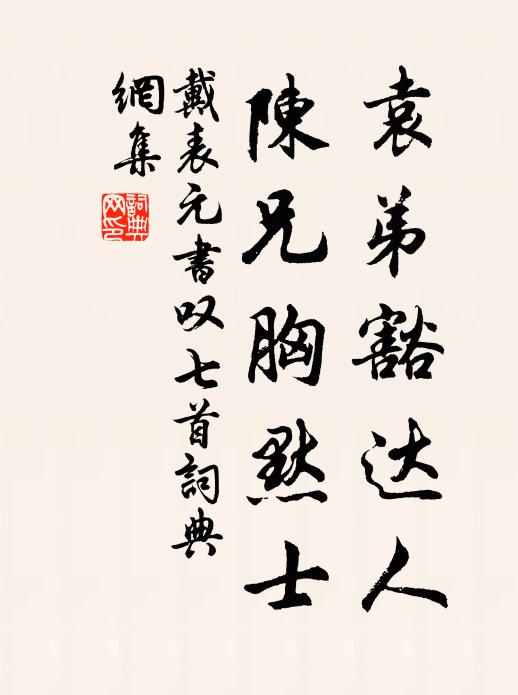 袁弟豁达人
陳兄胸㸃士
戴表元書叹七首詞典
網集
詞典網印